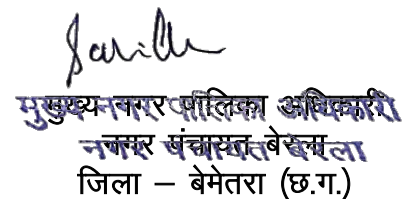 मुख्य नगर पालिका अधिकारी
नगर पंचायत बेरला
जिला – बेमेतरा (छ.ग.)